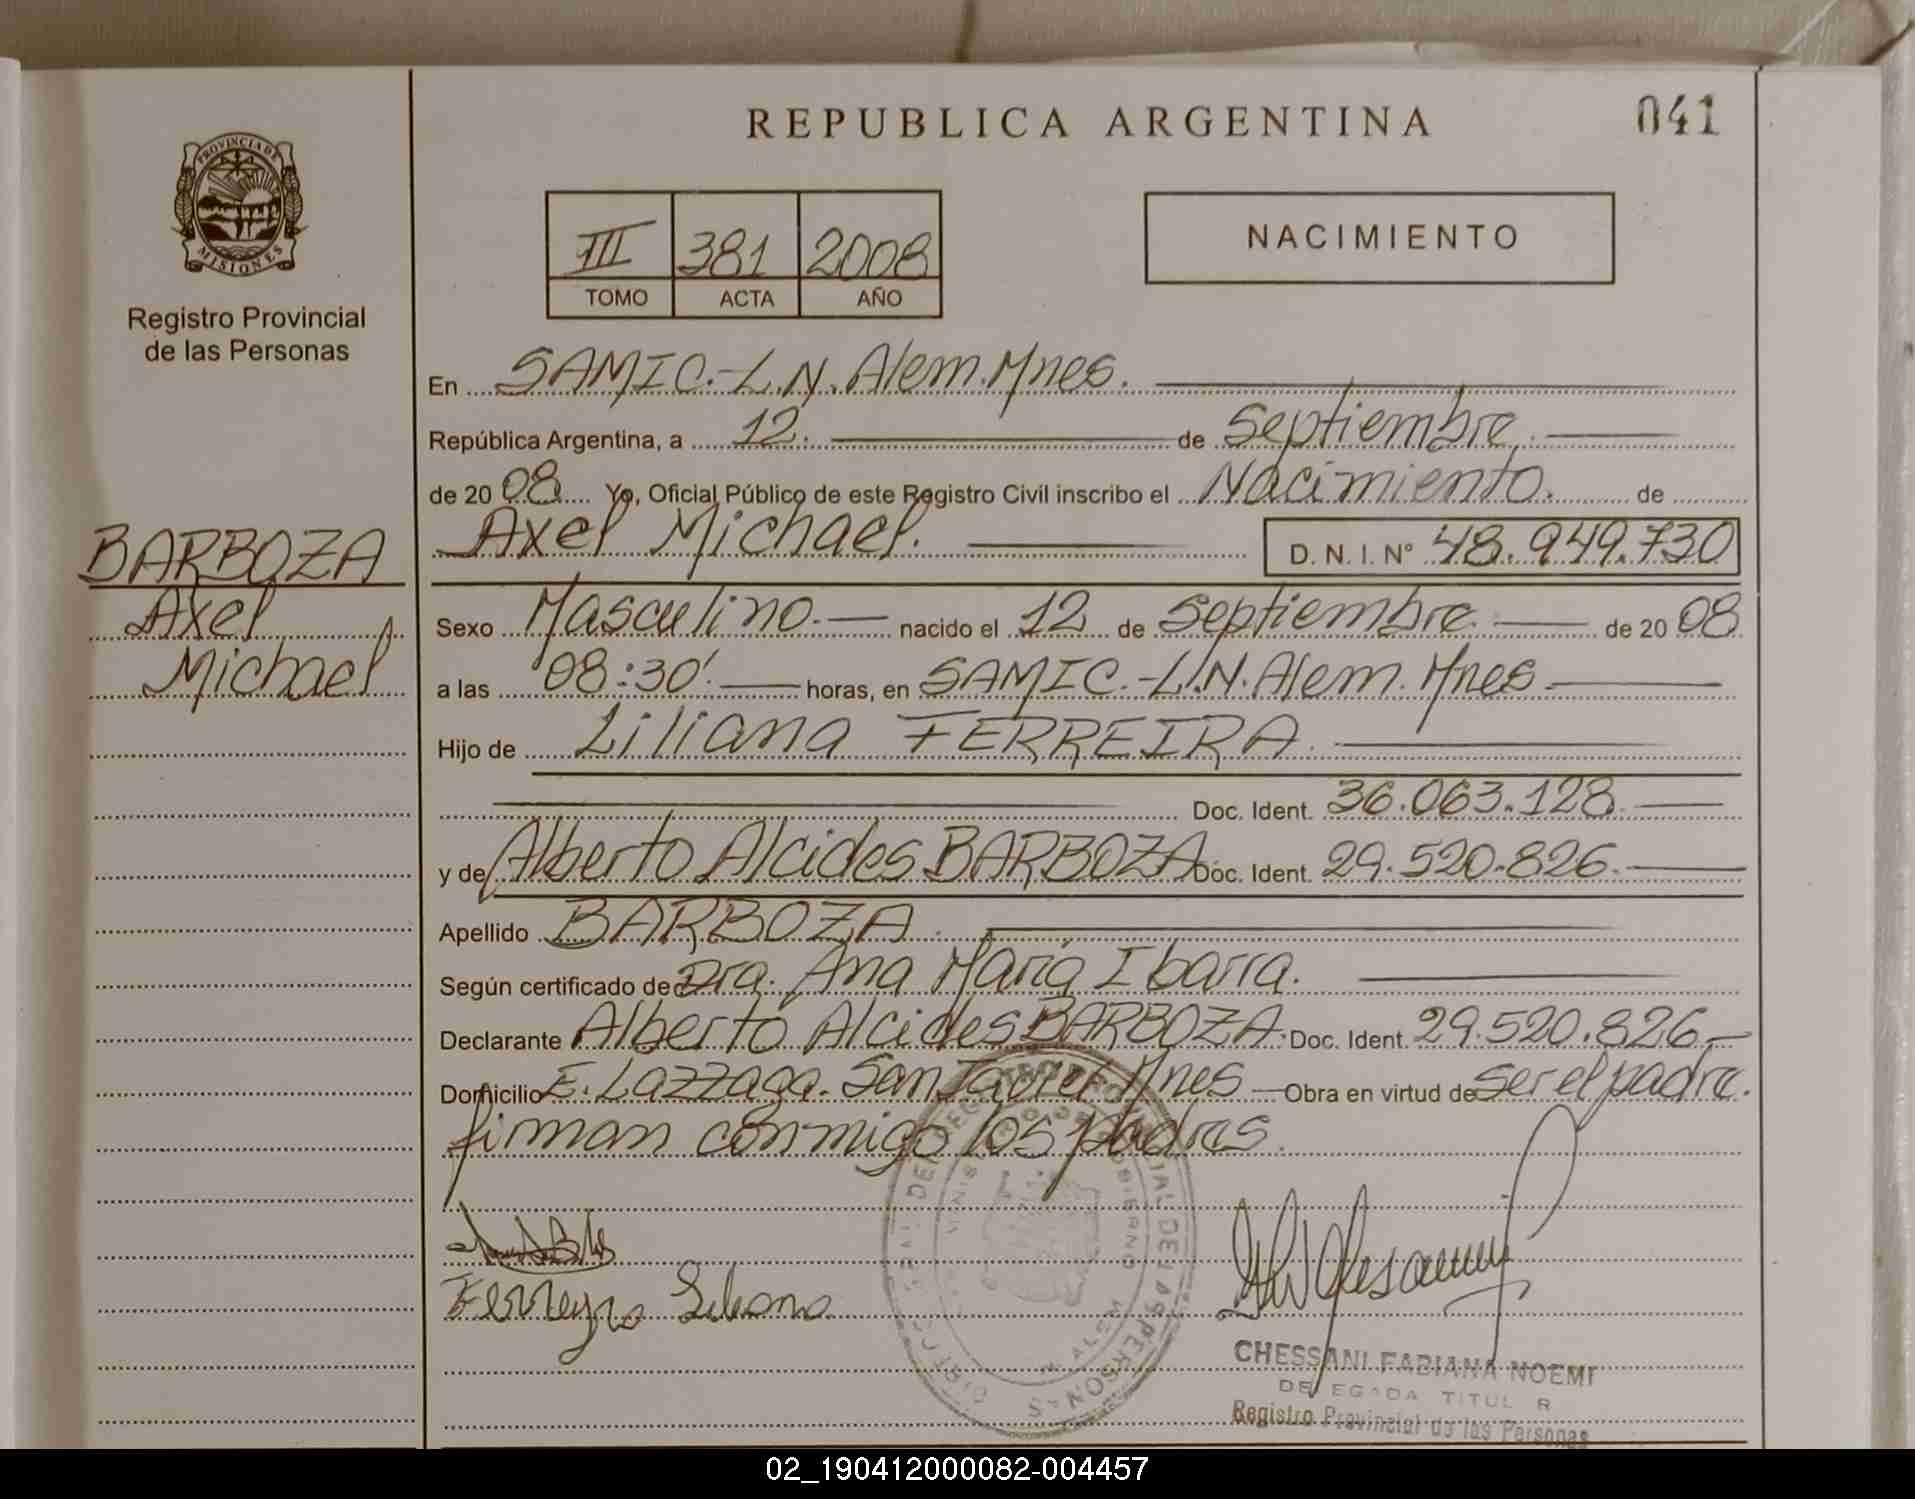 REPUBLICA ARGENTINA
041
PROVINCIA DE
MISIONES
Registro Provincial
de las Personas
III 381 2008
TOMO ACTA AÑO
NACIMIENTO
En SAMIC.-L.N.Alem.Mnes.
República Argentina, a 12. de septiembre.
de 2008. Yo, Oficial Público de este Registro Civil inscribo el Nacimiento. de
Axel Michael. D.N.I.N° 48.949.730
BARBOZA
Axel
Michael
Sexo Masculino.- nacido el 12 de septiembre. de 2008
a las 08:30'. horas, en SAMIC.-L.N.Alem.Mnes.
Hijo de Liliana FERREIRA.
Doc. Ident. 36.063.128.
y de Alberto Alcides BARBOZA Doc. Ident. 29.520.826.
Apellido BARBOZA.
Según certificado de Dra. Ana María Ibarra.
Declarante Alberto Alcides BARBOZA. Doc. Ident. 29.520.826.-
Domicilio E. Lazzaga. San Javier Mnes - Obra en virtud de ser el padre.
firman conmigo los padres.
Ferreyra Liliana
CHESSANI FABIANA NOEMI
DE EGADA TITUL R
Registro Provincial de las Personas
02_190412000082-004457